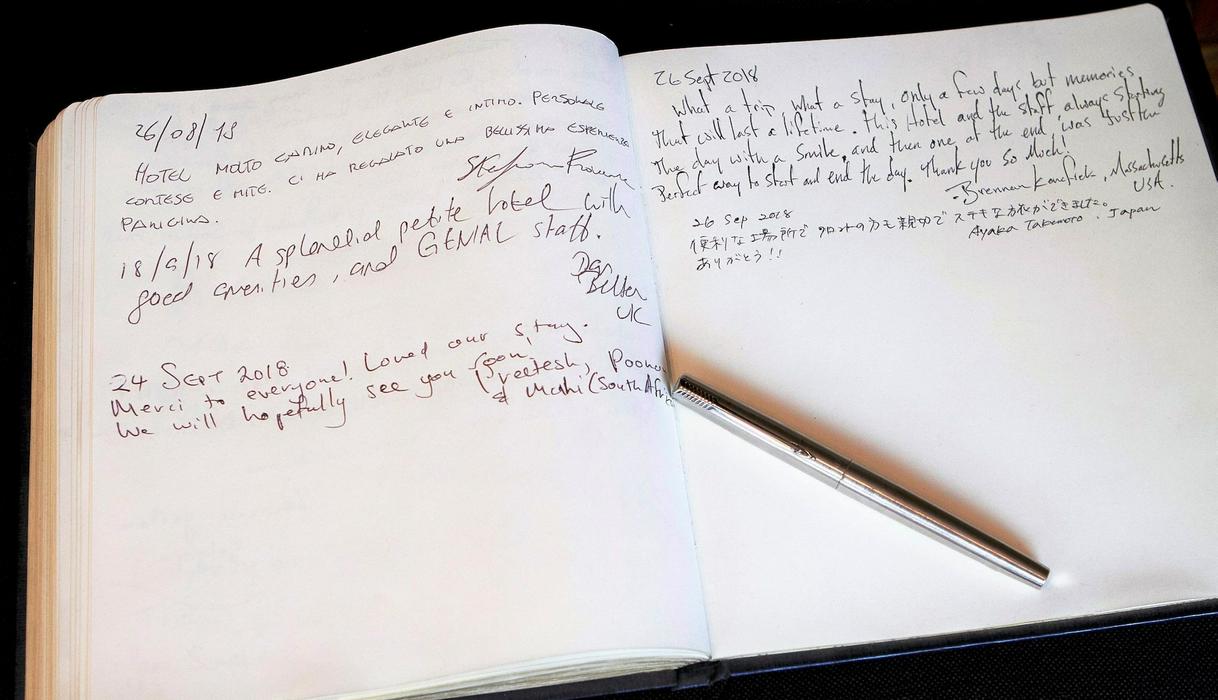 26/08/18
HOTEL MOLTO CARINO, ELEGANTE E INTIMO. PERSONALE
CORTESE E MITE. CI HA REGALATO UNA BELLISSIMA ESPERIENZA
PARIGINA.
18/9/18 A splendid petite hotel with
good amenities, and GENIAL staff.
UK
24 SEPT 2018
Merci to everyone! Loved our stay.
We will hopefully see you soon
Preetesh, Poona
& Mahi (South Africa
26 Sept 2018
What a trip, What a stay, only a few days but memories
that will last a lifetime. This Hotel and the staff, always starting
the day with a smile, and then one at the end, was just the
Perfect way to start and end the day. Thank you so Much!
- Brennan, Massachusetts
USA.
26 Sep 2018
便利な場所で フロントの方も親切で ステキな旅ができました。
ありがとう!!
Ayaka Takemoto. Japan